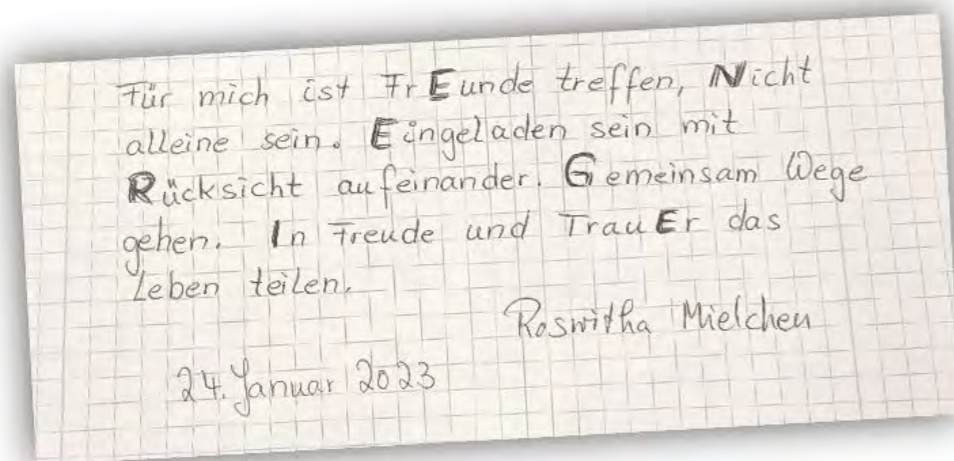 Für mich ist FrEunde treffen, Nicht
alleine sein. Eingeladen sein mit
Rücksicht aufeinander. Gemeinsam Wege
gehen. In Freude und TrauEr das
Leben teilen.
Roswitha Mielchen
24. Januar 2023